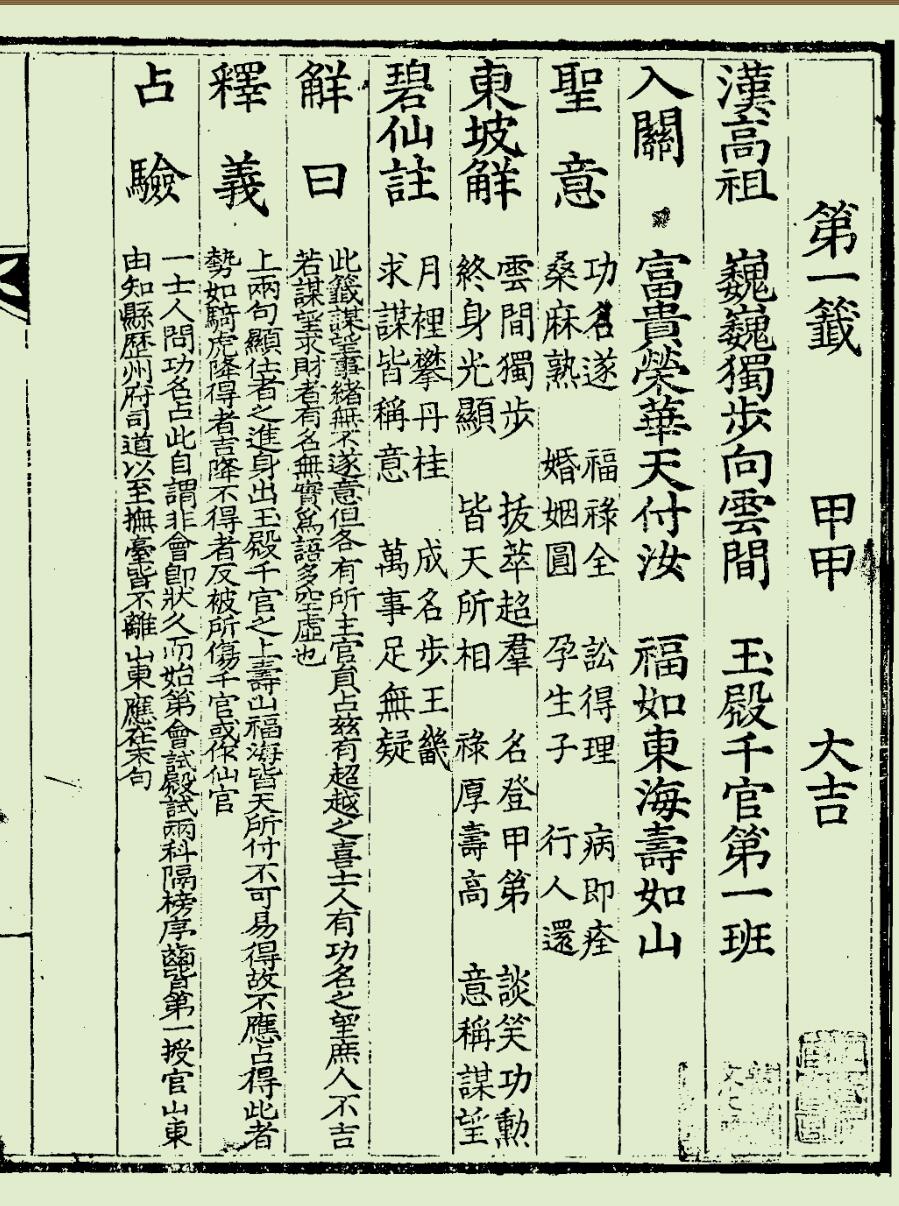 第一籤 甲甲 大吉
漢高祖 巍巍獨步向雲間 玉殿千官第一班
入關 富貴榮華天付汝 福如東海壽如山
聖意 功名遂 福祿全 訟得理 病即痊
桑麻熟 婚姻圓 孕生子 行人還
東坡解 雲間獨步 拔萃超羣 名登甲第 談笑功勳
終身光顯 皆天所相 祿厚壽高 意稱謀望
碧仙註 月裡攀丹桂 成名步王畿
求謀皆稱意 萬事足無疑
解曰 此籤謀望事緒無不遂意但各有所主官員占茲有超越之喜士人有功名之望庶人不吉
若謀望求財者有名無實爲語多空虛也
釋義 上兩句顯仕者之進身出玉殿千官之上壽山福海皆天所付不可易得故不應占得此者
勢如騎虎降得者吉降不得者反被所傷千官或作仙官
占驗 一士人問功名占此自謂非會卽狀久而始第會試殿試兩科隔榜序齒皆第一授官山東
由知縣歷州府司道以至撫臺皆不離山東應在末句